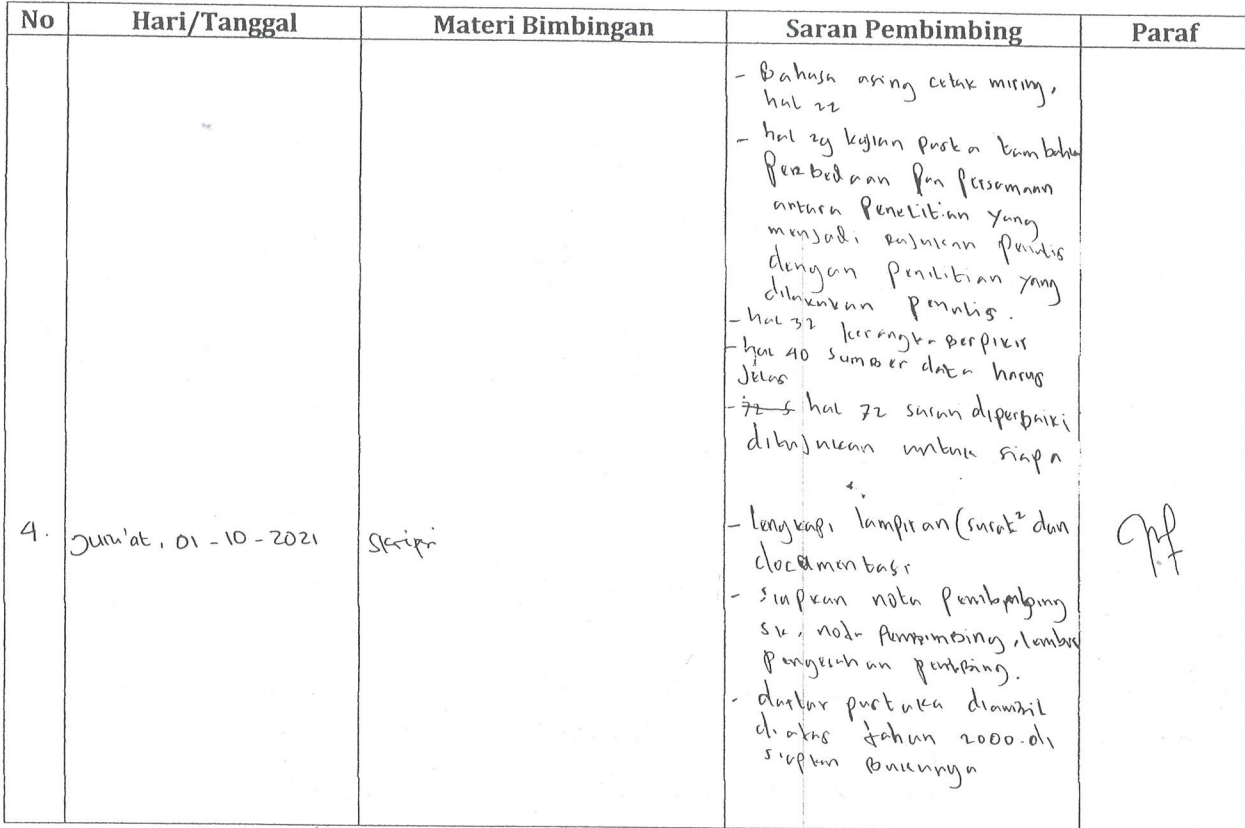 No Hari/Tanggal Materi Bimbingan Saran Pembimbing Paraf
- Bahasa asing cetak miring,
hal 22
- hal 29 kajian pustaka tambahkan
perbedaan dan persamaan
antara penelitian yang
menjadi rujukan penulis
dengan penilitian yang
dilakukan penulis.
- hal 32 kerangka berpikir
- hal 40 sumber data harus
jelas
- hal 72 saran diperbaiki
ditujukan untuk siapa
4. Jum'at, 01-10-2021 Skripsi - lengkapi lampiran (surat² dan
documentasi
- siapkan nota pembimbing
SK, nota pembimbing, lembar
pengesahan
- daftar pustaka diambil
di atas tahun 2000. di
siapkan bukunya